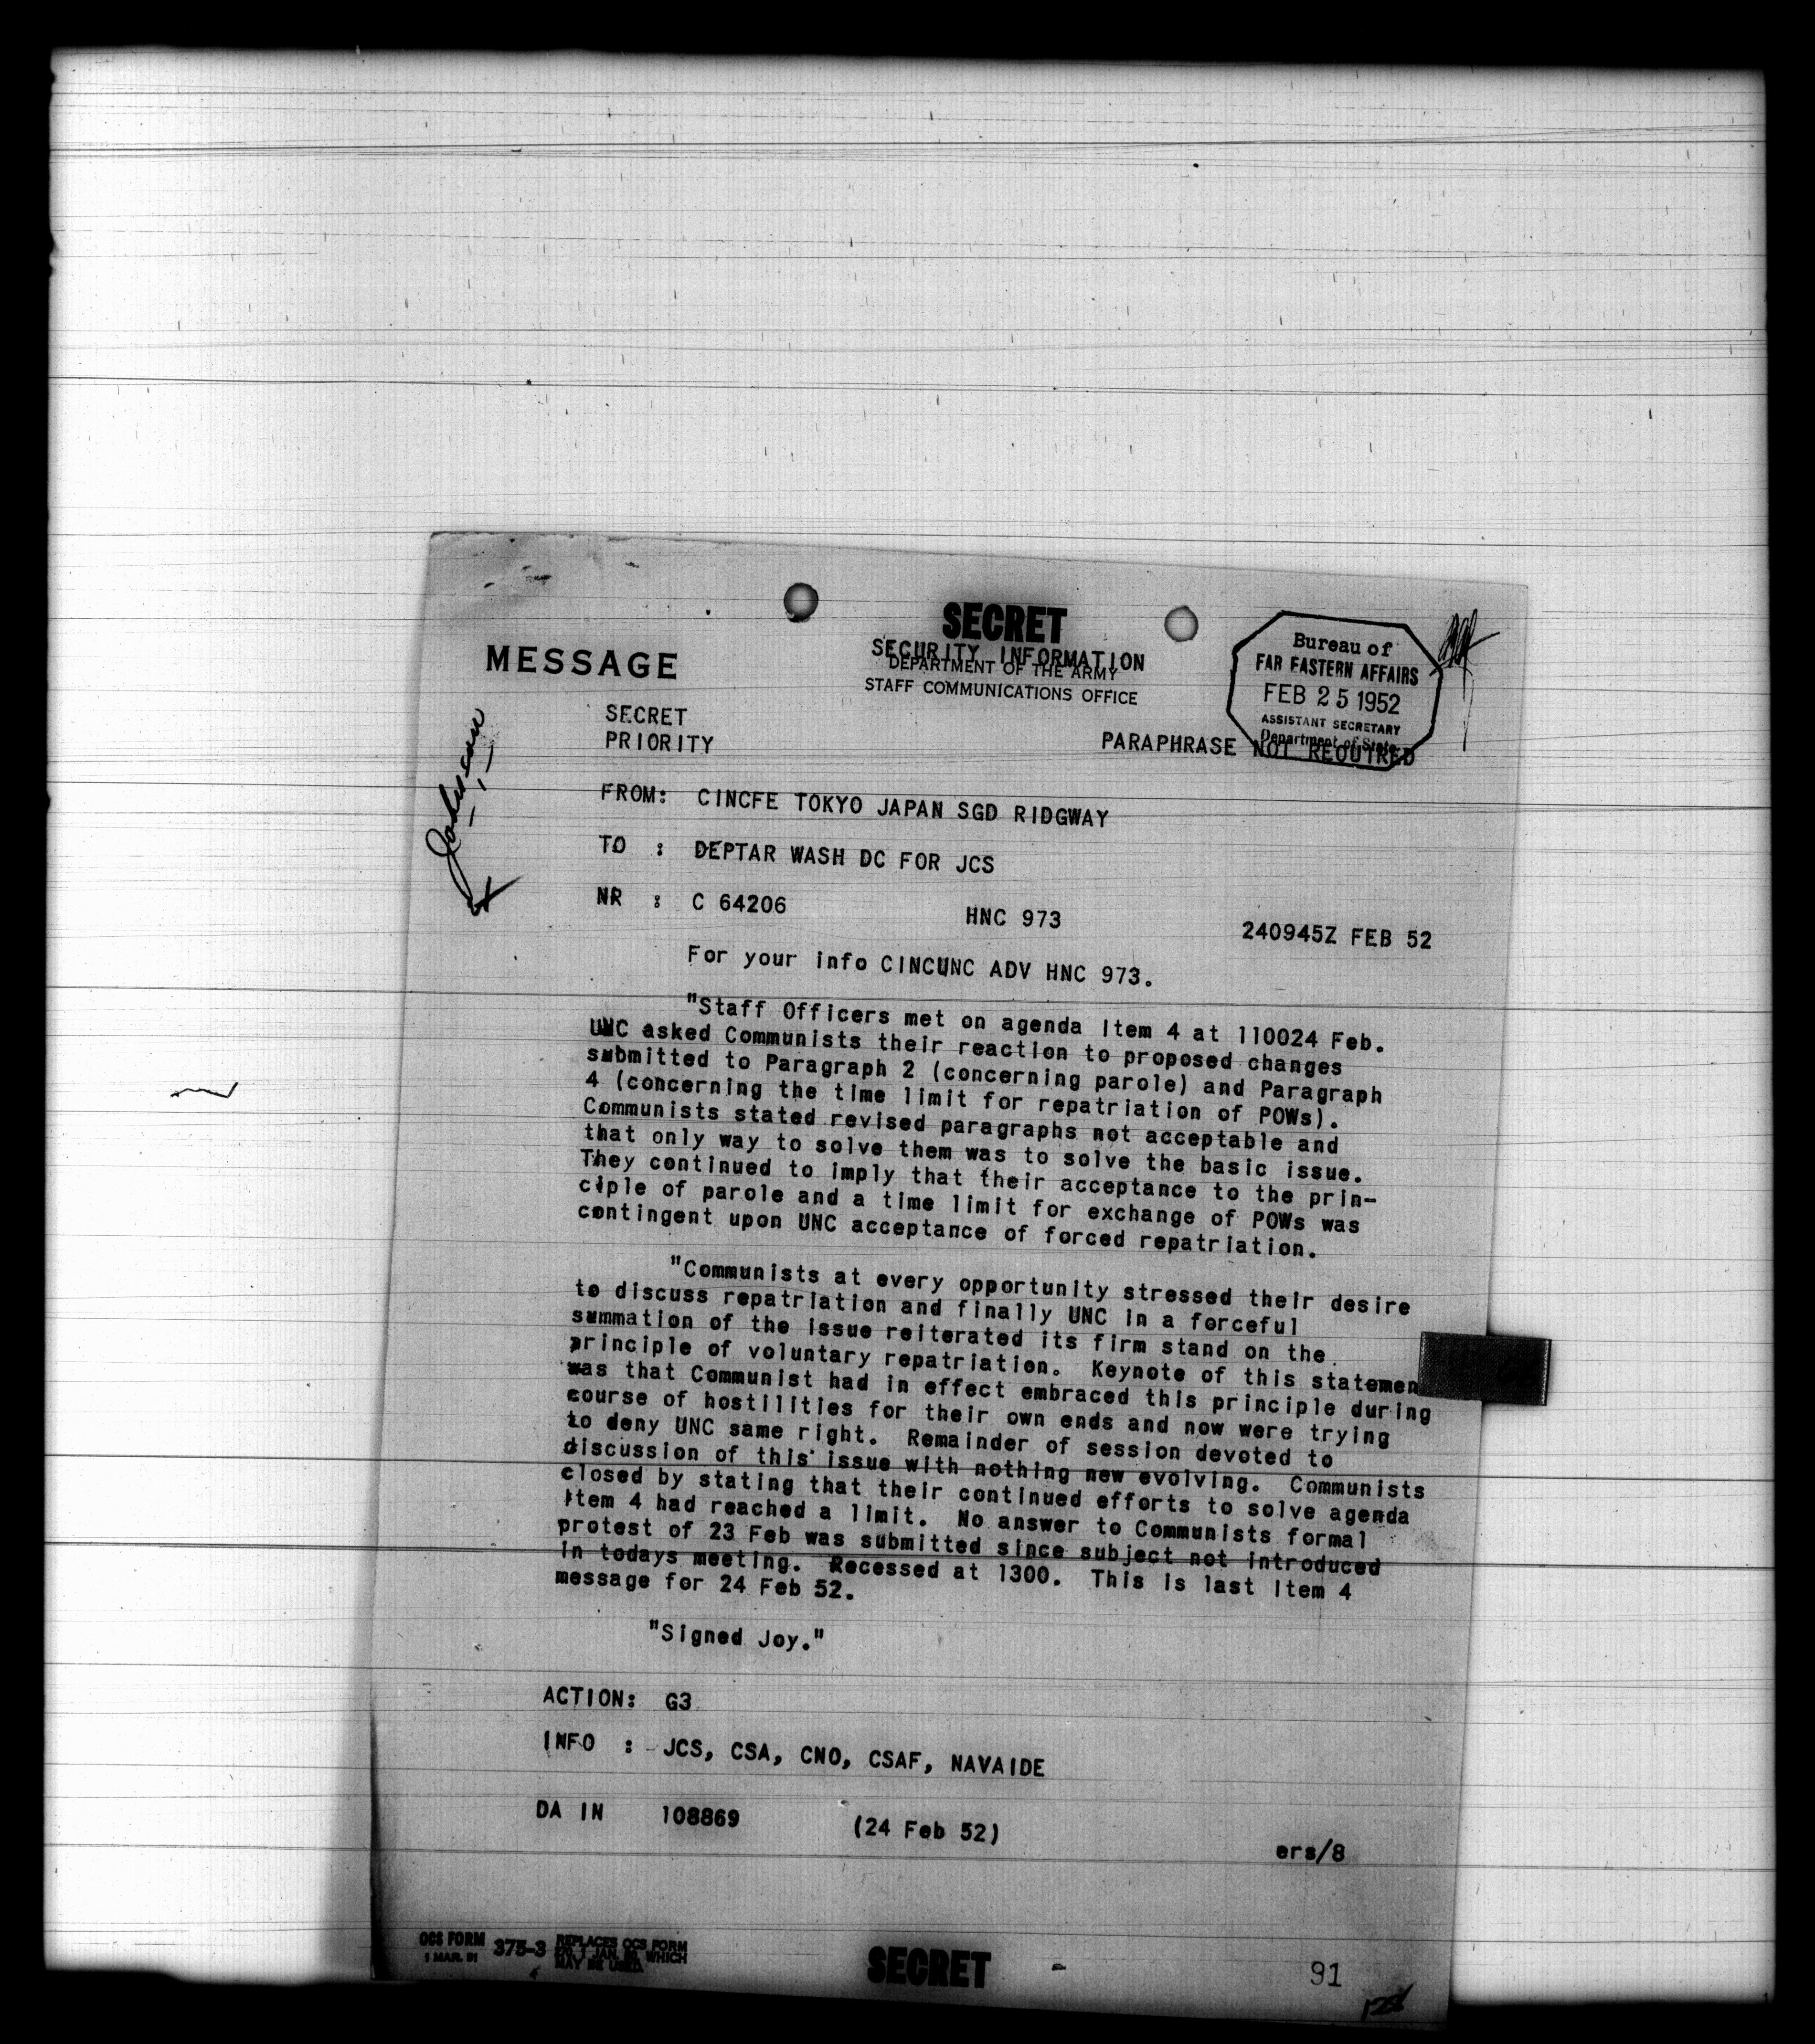 SECRET
SECURITY INFORMATION
MESSAGE
DEPARTMENT OF THE ARMY
STAFF COMMUNICATIONS OFFICE
Bureau of
FAR EASTERN AFFAIRS
FEB 25 1952
ASSISTANT SECRETARY
Department of State
SECRET
PRIORITY
PARAPHRASE NOT REQUIRED
FROM: CINCFE TOKYO JAPAN SGD RIDGWAY
TO : DEPTAR WASH DC FOR JCS
NR : C 64206 HNC 973 240945Z FEB 52
For your info CINCUNC ADV HNC 973.
"Staff Officers met on agenda Item 4 at 110024 Feb.
UNC asked Communists their reaction to proposed changes
submitted to Paragraph 2 (concerning parole) and Paragraph
4 (concerning the time limit for repatriation of POWs).
Communists stated revised paragraphs not acceptable and
that only way to solve them was to solve the basic issue.
They continued to imply that their acceptance to the prin-
ciple of parole and a time limit for exchange of POWs was
contingent upon UNC acceptance of forced repatriation.
"Communists at every opportunity stressed their desire
to discuss repatriation and finally UNC in a forceful
summation of the issue reiterated its firm stand on the
principle of voluntary repatriation. Keynote of this statemen
was that Communist had in effect embraced this principle during
course of hostilities for their own ends and now were trying
to deny UNC same right. Remainder of session devoted to
discussion of this issue with nothing new evolving. Communists
closed by stating that their continued efforts to solve agenda
Item 4 had reached a limit. No answer to Communists formal
protest of 23 Feb was submitted since subject not introduced
in todays meeting. Recessed at 1300. This is last Item 4
message for 24 Feb 52.
"Signed Joy."
ACTION: G3
INFO : JCS, CSA, CNO, CSAF, NAVAIDE
DA IN 108869 (24 Feb 52)
ers/8
OCS FORM 375-3 REPLACES OCS FORM
1 MAR. 51
WHICH
MAY BE USED.
SECRET
91